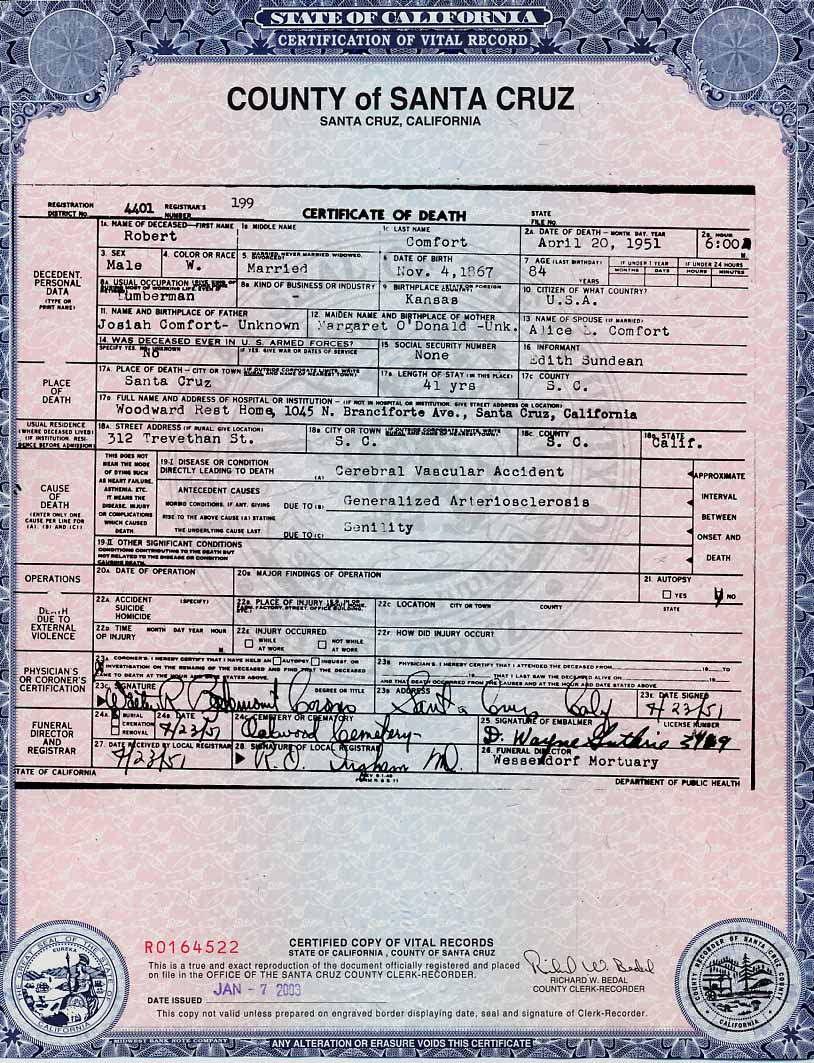 STATE OF CALIFORNIA
CERTIFICATION OF VITAL RECORD
COUNTY of SANTA CRUZ
SANTA CRUZ, CALIFORNIA
REGISTRATION DISTRICT No. 4401 REGISTRAR'S NUMBER 199 CERTIFICATE OF DEATH STATE FILE No.
1A. NAME OF DECEASED—FIRST NAME 1B MIDDLE NAME 1C LAST NAME 2A DATE OF DEATH — MONTH DAY, YEAR 2B. HOUR
Robert Comfort April 20, 1951 6:00
3. SEX 4. COLOR OR RACE 5. MARRIED, NEVER MARRIED, WIDOWED, DIVORCED 6 DATE OF BIRTH 7 AGE (LAST BIRTHDAY) IF UNDER 1 YEAR IF UNDER 24 HOURS
Male W. Married Nov. 4,1867 84 YEARS MONTHS DAYS HOURS MINUTES
DECEDENT PERSONAL DATA (TYPE OR PRINT NAME)
8A. USUAL OCCUPATION 8B. KIND OF BUSINESS OR INDUSTRY 9 BIRTHPLACE 10. CITIZEN OF WHAT COUNTRY?
Lumberman Kansas U.S.A.
11. NAME AND BIRTHPLACE OF FATHER 12. MAIDEN NAME AND BIRTHPLACE OF MOTHER 13 NAME OF SPOUSE (IF MARRIED)
Josiah Comfort- Unknown Margaret O'Donald -Unk. Alice L. Comfort
14. WAS DECEASED EVER IN U. S. ARMED FORCES? 15 SOCIAL SECURITY NUMBER 16 INFORMANT
SPECIFY YES, NO, UNKNOWN IF YES, GIVE WAR OR DATES OF SERVICE
No None Edith Sundean
PLACE OF DEATH
17A. PLACE OF DEATH — CITY OR TOWN 17B LENGTH OF STAY (IN THIS PLACE) 17C COUNTY
Santa Cruz 41 yrs S. C.
17D FULL NAME AND ADDRESS OF HOSPITAL OR INSTITUTION — (IF NOT IN HOSPITAL OR INSTITUTION, GIVE STREET ADDRESS OR LOCATION)
Woodward Rest Home, 1045 N. Branciforte Ave., Santa Cruz, California
USUAL RESIDENCE (WHERE DECEASED LIVED) (IF INSTITUTION, RESIDENCE BEFORE ADMISSION)
18A. STREET ADDRESS (IF RURAL GIVE LOCATION) 18B CITY OR TOWN 18C. COUNTY 18D. STATE
312 Trevethan St. S. C. S. C. Calif.
CAUSE OF DEATH (ENTER ONLY ONE CAUSE PER LINE FOR (A), (B) AND (C))
THIS DOES NOT MEAN THE MODE OF DYING SUCH AS HEART FAILURE, ASTHENIA, ETC. IT MEANS THE DISEASE, INJURY OR COMPLICATIONS WHICH CAUSED DEATH.
19-I DISEASE OR CONDITION DIRECTLY LEADING TO DEATH (A) Cerebral Vascular Accident
ANTECEDENT CAUSES
MORBID CONDITIONS, IF ANY, GIVING DUE TO (B) Generalized Arteriosclerosis
RISE TO THE ABOVE CAUSE (A) STATING
THE UNDERLYING CAUSE LAST DUE TO (C) Senility
APPROXIMATE INTERVAL BETWEEN ONSET AND DEATH
19-II OTHER SIGNIFICANT CONDITIONS
CONDITIONS CONTRIBUTING TO THE DEATH BUT NOT RELATED TO THE DISEASE OR CONDITION CAUSING DEATH.
OPERATIONS 20A DATE OF OPERATION 20B MAJOR FINDINGS OF OPERATION 21. AUTOPSY
YES NO
DEATH DUE TO EXTERNAL VIOLENCE
22A. ACCIDENT SUICIDE HOMICIDE (SPECIFY) 22B. PLACE OF INJURY 22C LOCATION CITY OR TOWN COUNTY STATE
22D TIME OF INJURY MONTH DAY YEAR HOUR M 22E INJURY OCCURRED 22F HOW DID INJURY OCCUR?
WHILE AT WORK NOT WHILE AT WORK
PHYSICIAN'S OR CORONER'S CERTIFICATION
23A. CORONER'S: I HEREBY CERTIFY THAT I HAVE HELD AN AUTOPSY INQUEST OR INVESTIGATION ON THE REMAINS OF THE DECEASED AND FIND THAT THE DECEASED CAME TO DEATH AT THE HOUR AND DATE STATED ABOVE.
23B PHYSICIAN'S: I HEREBY CERTIFY THAT I ATTENDED THE DECEASED FROM 19 TO 19 THAT I LAST SAW THE DECEASED ALIVE ON AND THAT DEATH OCCURRED FROM THE CAUSES AND AT THE HOUR AND DATE STATED ABOVE
23C. SIGNATURE DEGREE OR TITLE 23D ADDRESS 23E. DATE SIGNED
Coroner Santa Cruz 4/23/51
FUNERAL DIRECTOR AND REGISTRAR
24A. BURIAL CREMATION REMOVAL 24B DATE 24C CEMETERY OR CREMATORY 25. SIGNATURE OF EMBALMER LICENSE NUMBER
4/23/51 Oakwood Cemetery D. Wayne Guthrie
27. DATE RECEIVED BY LOCAL REGISTRAR 28. SIGNATURE OF LOCAL REGISTRAR 26. FUNERAL DIRECTOR
4/23/51 Wessendorf Mortuary
STATE OF CALIFORNIA DEPARTMENT OF PUBLIC HEALTH
R0164522
CERTIFIED COPY OF VITAL RECORDS
STATE OF CALIFORNIA, COUNTY OF SANTA CRUZ
This is a true and exact reproduction of the document officially registered and placed
on file in the OFFICE OF THE SANTA CRUZ COUNTY CLERK-RECORDER.
JAN - 7 2003
DATE ISSUED
Richard W. Bedal
RICHARD W. BEDAL
COUNTY CLERK-RECORDER
This copy not valid unless prepared on engraved border displaying date, seal and signature of Clerk-Recorder.
MIDWEST BANK NOTE COMPANY
ANY ALTERATION OR ERASURE VOIDS THIS CERTIFICATE
GREAT SEAL OF THE STATE OF CALIFORNIA
EUREKA
COUNTY RECORDER OF SANTA CRUZ COUNTY
CALIFORNIA